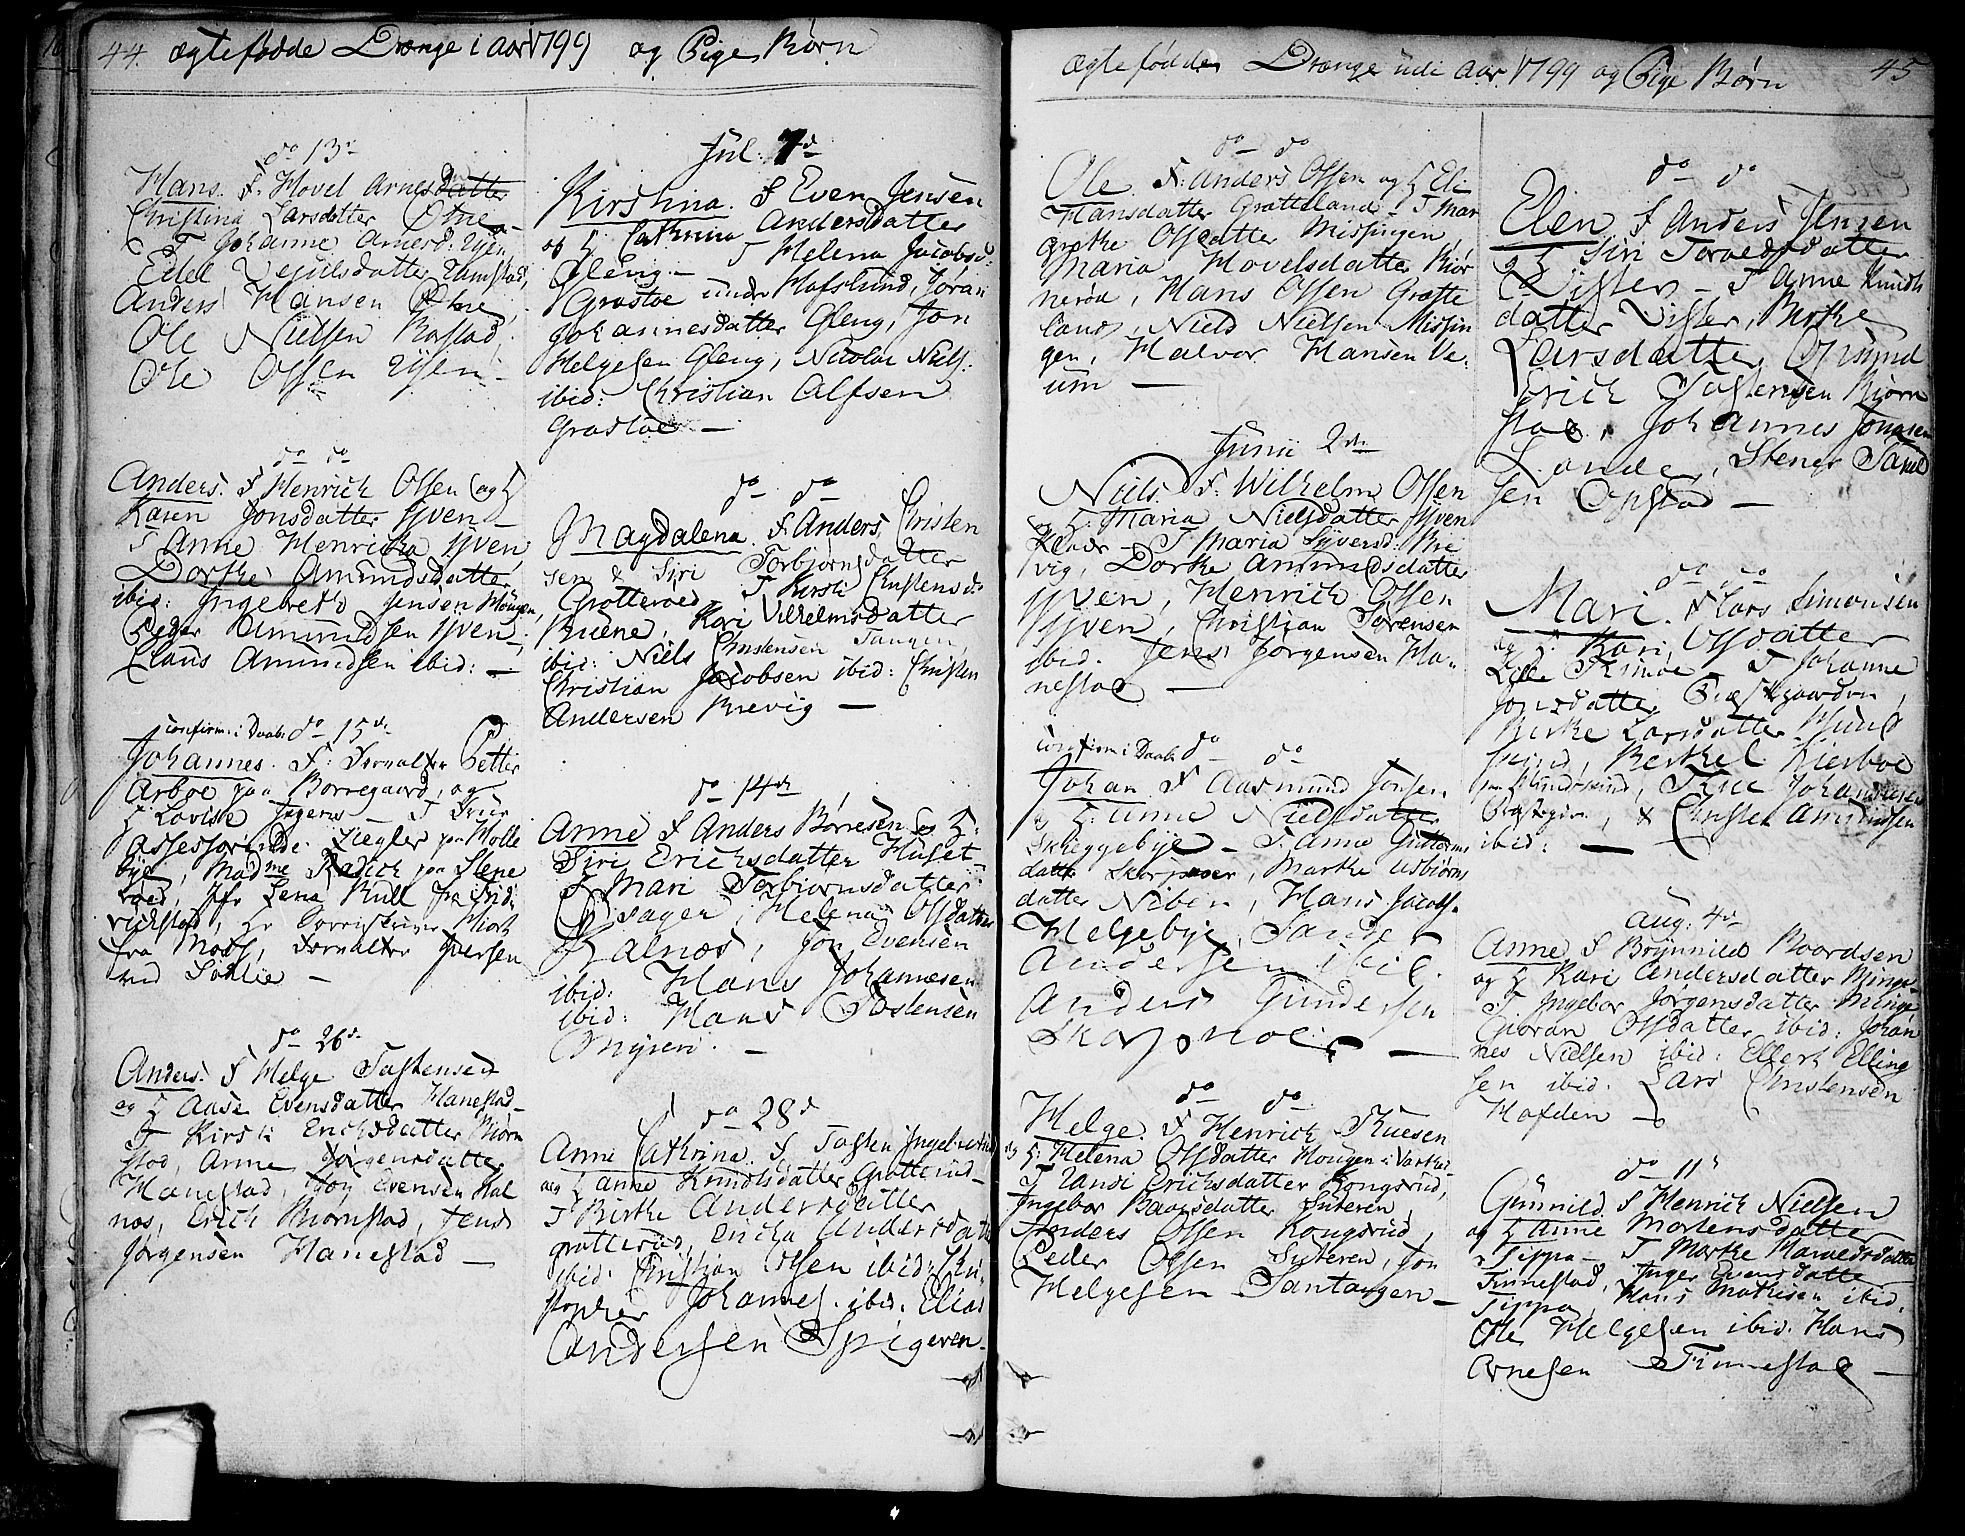 44. ægtefødde Drenge i aar 1799 og Pige Børn
do 13de
Hans. F. Hovel Arnesdatter
Christina Larsdatter Otne
T Johanne Arnesd:
Edel
Anders Hansen Otne,
Ole Nielsen Rostad,
Ole Olsen
do do
Anders. F Henrich Olsen og H
Karen Jonsdatter Yven
T Anne Henricha Yven,
Dorthe Amundsdatter
ibid: Ingebret Jensen Hougen,
Peder Amundsen Yven,
Claus Amundsen ibid: —
confirm: i Daab: do 15de
Johannes. F: Forvalter Petter
Arboe paa Borregaard, og
H Lovise — T
Assessorinde Ziegler paa Molle
bye, Madme Radich paa Stene
röed, Jfr Lena Bull fra Frid:
richstad, Hr
fra Moss, Forvalter Iversen
ved Sohlie —
do 26de
Anders. F Helge Tostensen
og H Aase Evensdatter Hanestad
T Kirsti Erichsdatter Biørn
stad, Anne Jørgensdatter
Hanestad, Jon Evensen Kal
nes, Erich Biørnstad, Jens
Jørgensen Hanestad —
Jul: 7de
Kirstina. F Even Jensen
og H Cathrina Andersdatter
Gleng — T Helena Jacobsd:
Grostoe under Hafslund, Jøran
Johannesdatter Gleng, Jon
Helgesen Gleng, Nicolai Niels:
ibid: Christian Alfsen
Grostoe —
do do
Magdalena. F. Anders Christen
sen & Siri Torbjørnsdatter
Grotteroed T Kirsti Christensd:
Buene, Kari Vilhelmsdatter
ibid: Niels Christensen Tangen,
Christian Jacobsen ibid: Christen
Andersen Brevig —
do 14de
Anne F Anders Børresen og H:
Siri Erichsdatter Huset
T Mari Torbiørnsdatter
Opsager, Helena Olsdatter
Kalnes, Jon Evensen
ibid: Hans Johannesen
ibid: Hans Tostensen
Myren. —
do 28de
Anne Cathrina. F Tosten Ingebretsen
og H Anne Knudsdatter Grotterud
T Birthe Andersdatter
Grotterud, Ericha Andersdatter
ibid: Christian Olsen ibid: Kri
stopher Johannes: ibid: Elias
Andersen Spigeren
ægtefødde Drenge udi aar 1799 og Pige Børn 45
do do
Ole F: Anders Olsen og H Eli
Hansdatter Grotteland — T Mar
grethe Olsdatter Missingen
Maria Hovelsdatter Biør
nerød, Hans Olsen Grotte
land, Niels Nielsen Missin
gen, Halvor Hansen Ve
um —
Junii 2de
Niels. F: Wilhelm Olsen
og H: Maria Nielsdatter Yven
Kloster — T Maria Syversd: Bre
vig, Dorthe Amundsdatter
Yven, Henrich Olsen
Yven, Christian Sørensen
ibid. Jens Jørgensen Ha
nestad —
confirm: i Daab: do do
Johan F Aasmund Jonsen
og H: Anne Nielsdatter
Skieggebye — T. Anne Guttorms
datter Skorpnoes, Marthe Asbiørns
datter Niben, Hans Jacobs:
Helgebye, Sander
Andersen ibid.
Anders Gundersen
Skarpnoes —
do do
Helge. F Henrich Thuesen
og H: Helena Olsdatter Hougen i Varteig
T Randi Erichsdatter Kongsrud,
Ingebor Baarsdatter Suteren,
Anders Olsen Kongsrud,
Peder Olsen Suteren, Jon
Helgesen Santangen —
do do
Elen F Anders Jensen
og H Siri Toraedsdatter
Vister — T Anne Knuds
datter Vister, Birthe
Larsdatter Opsund
Erich Tostensen Biørn
stad, Johannes Jonasen
Lande, Stener Samel
sen Opstad —
do do
Mari. F Lars Simonsen
og H Kari Olsdatter
Lille — T Johanne
Jonsdatter Præstegaarden,
Birthe Larsdatter Hund
send, Berthel Kierboe
paa Hundsend, True Johannesen
Præstegrn, & Christen Amundsen
ibid: —
Aug: 4de
Anne F Brynnild Boordsen
og H Kari Andersdatter Minge
T Ingebor Jørgensdatter Minge
Gioran Olsdatter ibid: Johan
nes Nielsen ibid: Ellert Elling
sen ibid. Lars Christensen
Hafden —
do 11te
Gunnild. F Henrich Nielsen
og H Anne Mortensdatter
Tippa — T Marthe Haraldsdatter
Finnestad, Inger Evensdatter
Tippa, Hans Mathisen ibid.
Ole Helgesen ibid. Hans
Arnesen Finnestad —